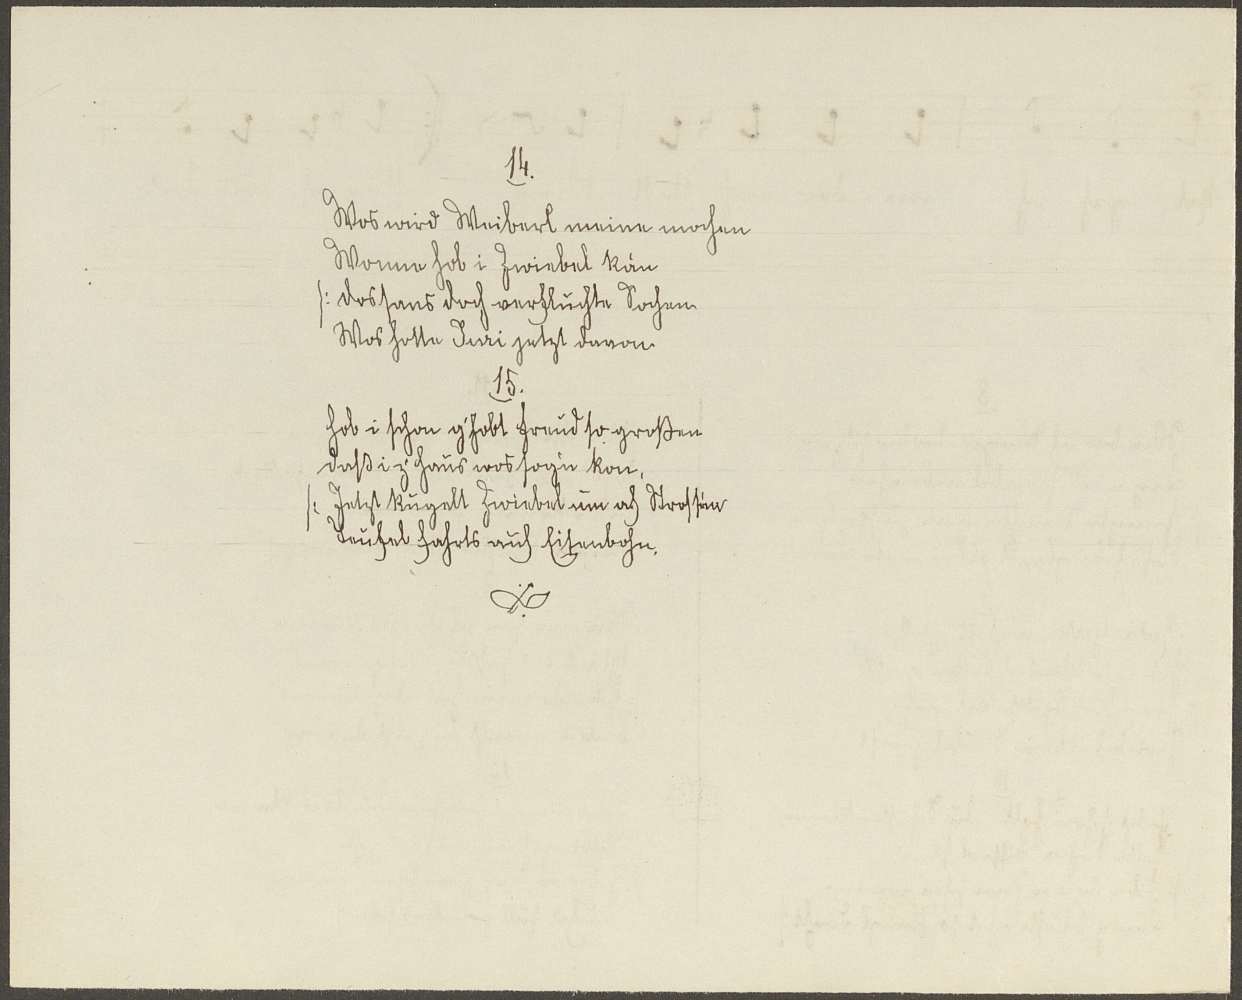 14.
Wos wird Weiberl meine mochen
Wonne hob i Zwiebel kän
|: dos sans doch verfluchte Sochen
Wos hotte Juri jetzt davon
15.
hob i schon g'hobt Freud so großen
daß i z' Haus wos sog'n kon,
|: Jetzt kugelt Zwiebel um af Strossän
Teufel fahrts auch Eisenbohn.